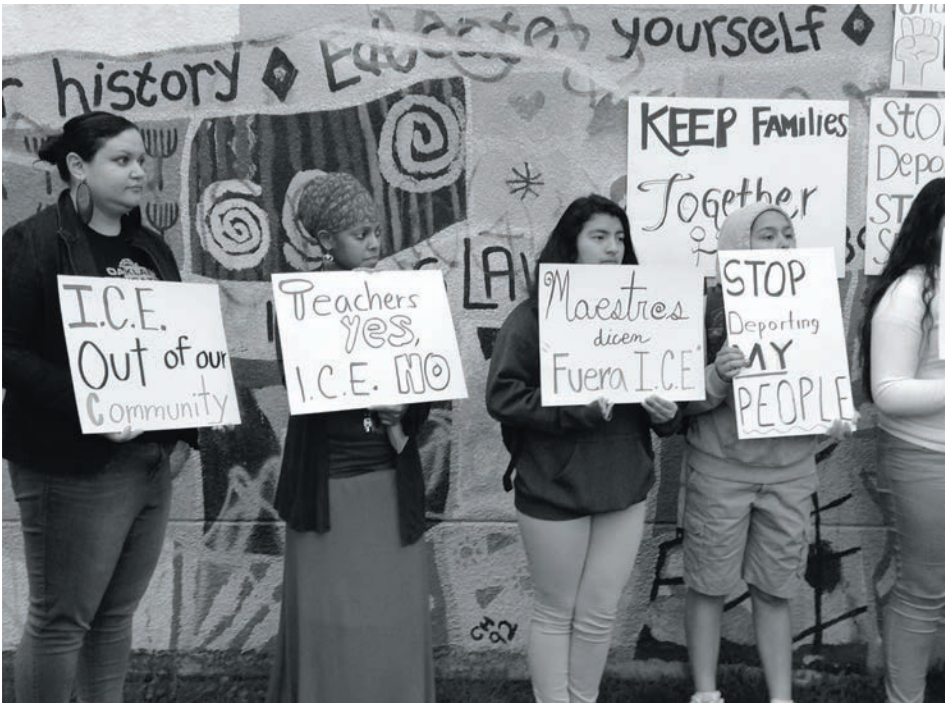 r history Educate yourself
LA
KEEP FAMILIES
Together
STOP
I.C.E.
Out of our
Community
OAKLAND
Teachers
YES,
I.C.E. NO
Maestr@s
dicen
"Fuera I.C.E"
STOP
Deporting
MY
PEOPLE